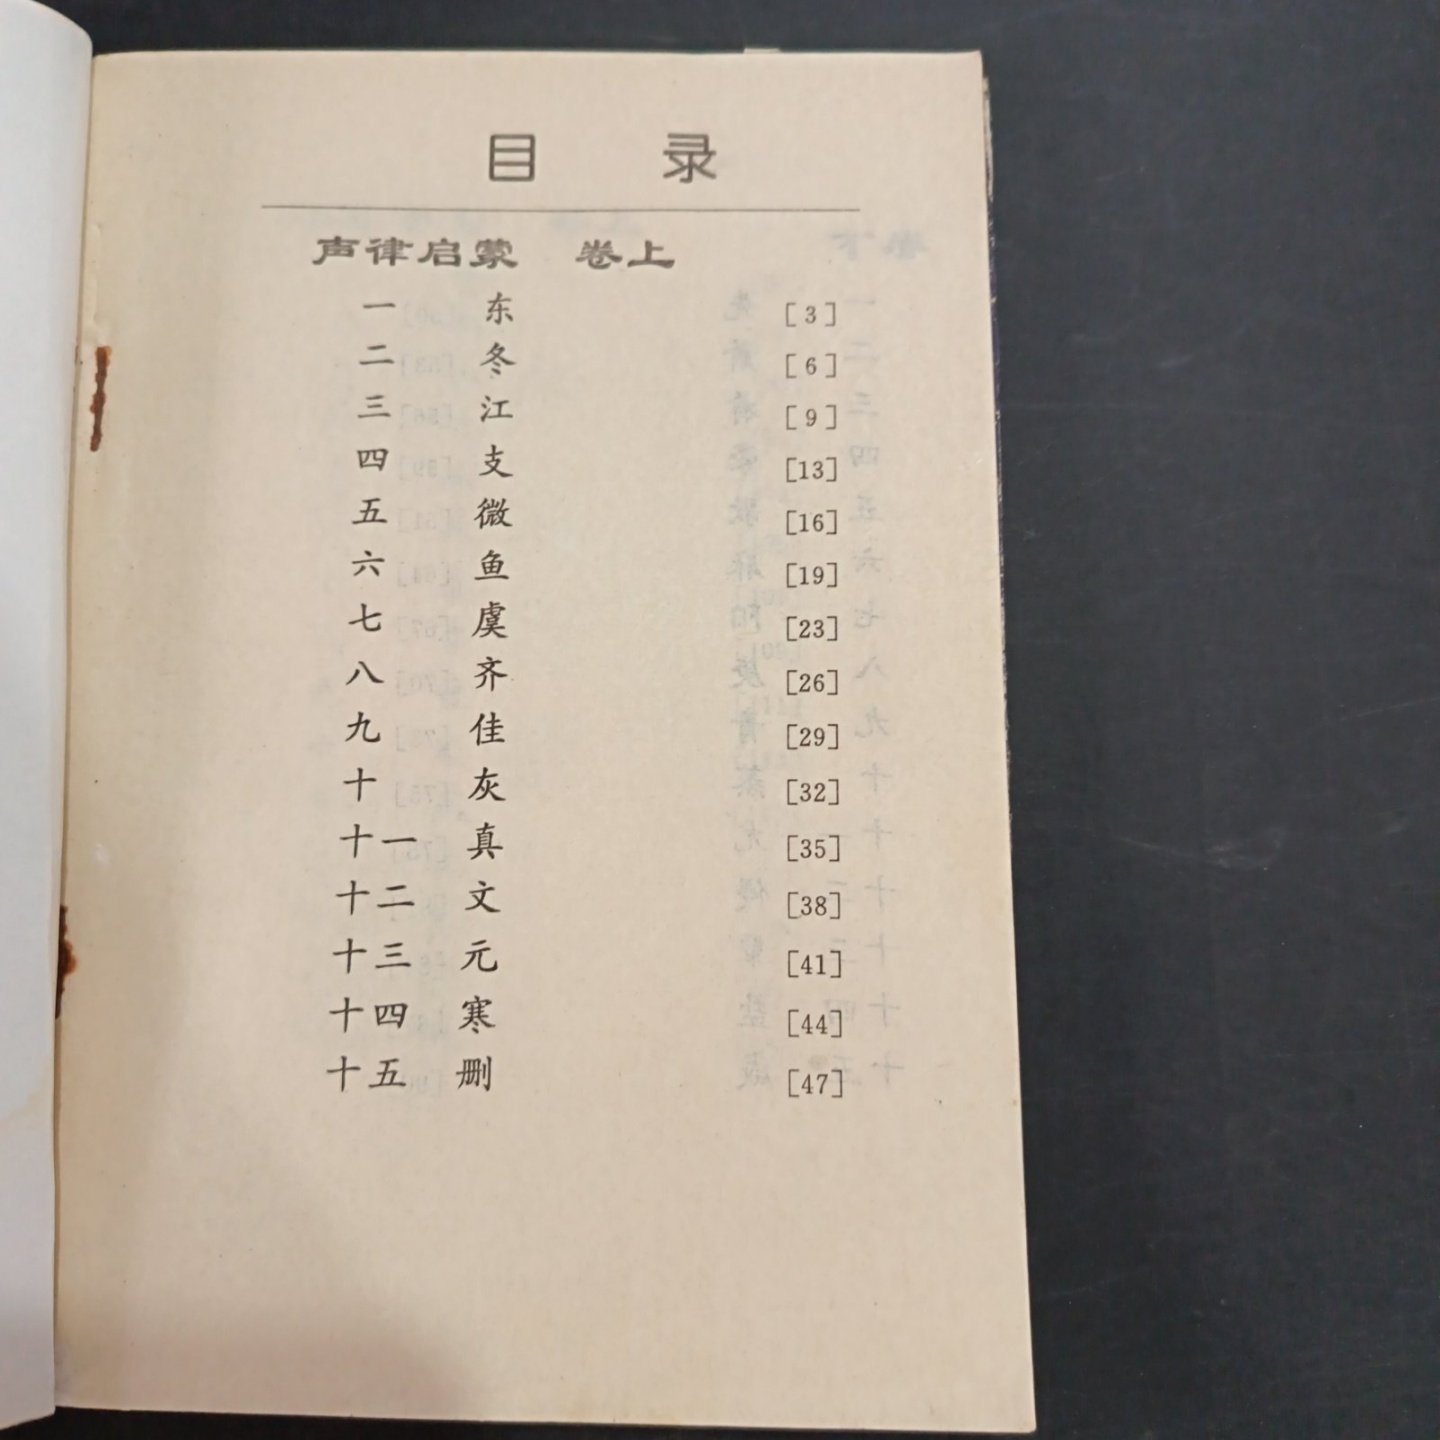 目 录
声律启蒙 卷上
一 东 [3]
二 冬 [6]
三 江 [9]
四 支 [13]
五 微 [16]
六 鱼 [19]
七 虞 [23]
八 齐 [26]
九 佳 [29]
十 灰 [32]
十一 真 [35]
十二 文 [38]
十三 元 [41]
十四 寒 [44]
十五 删 [47]